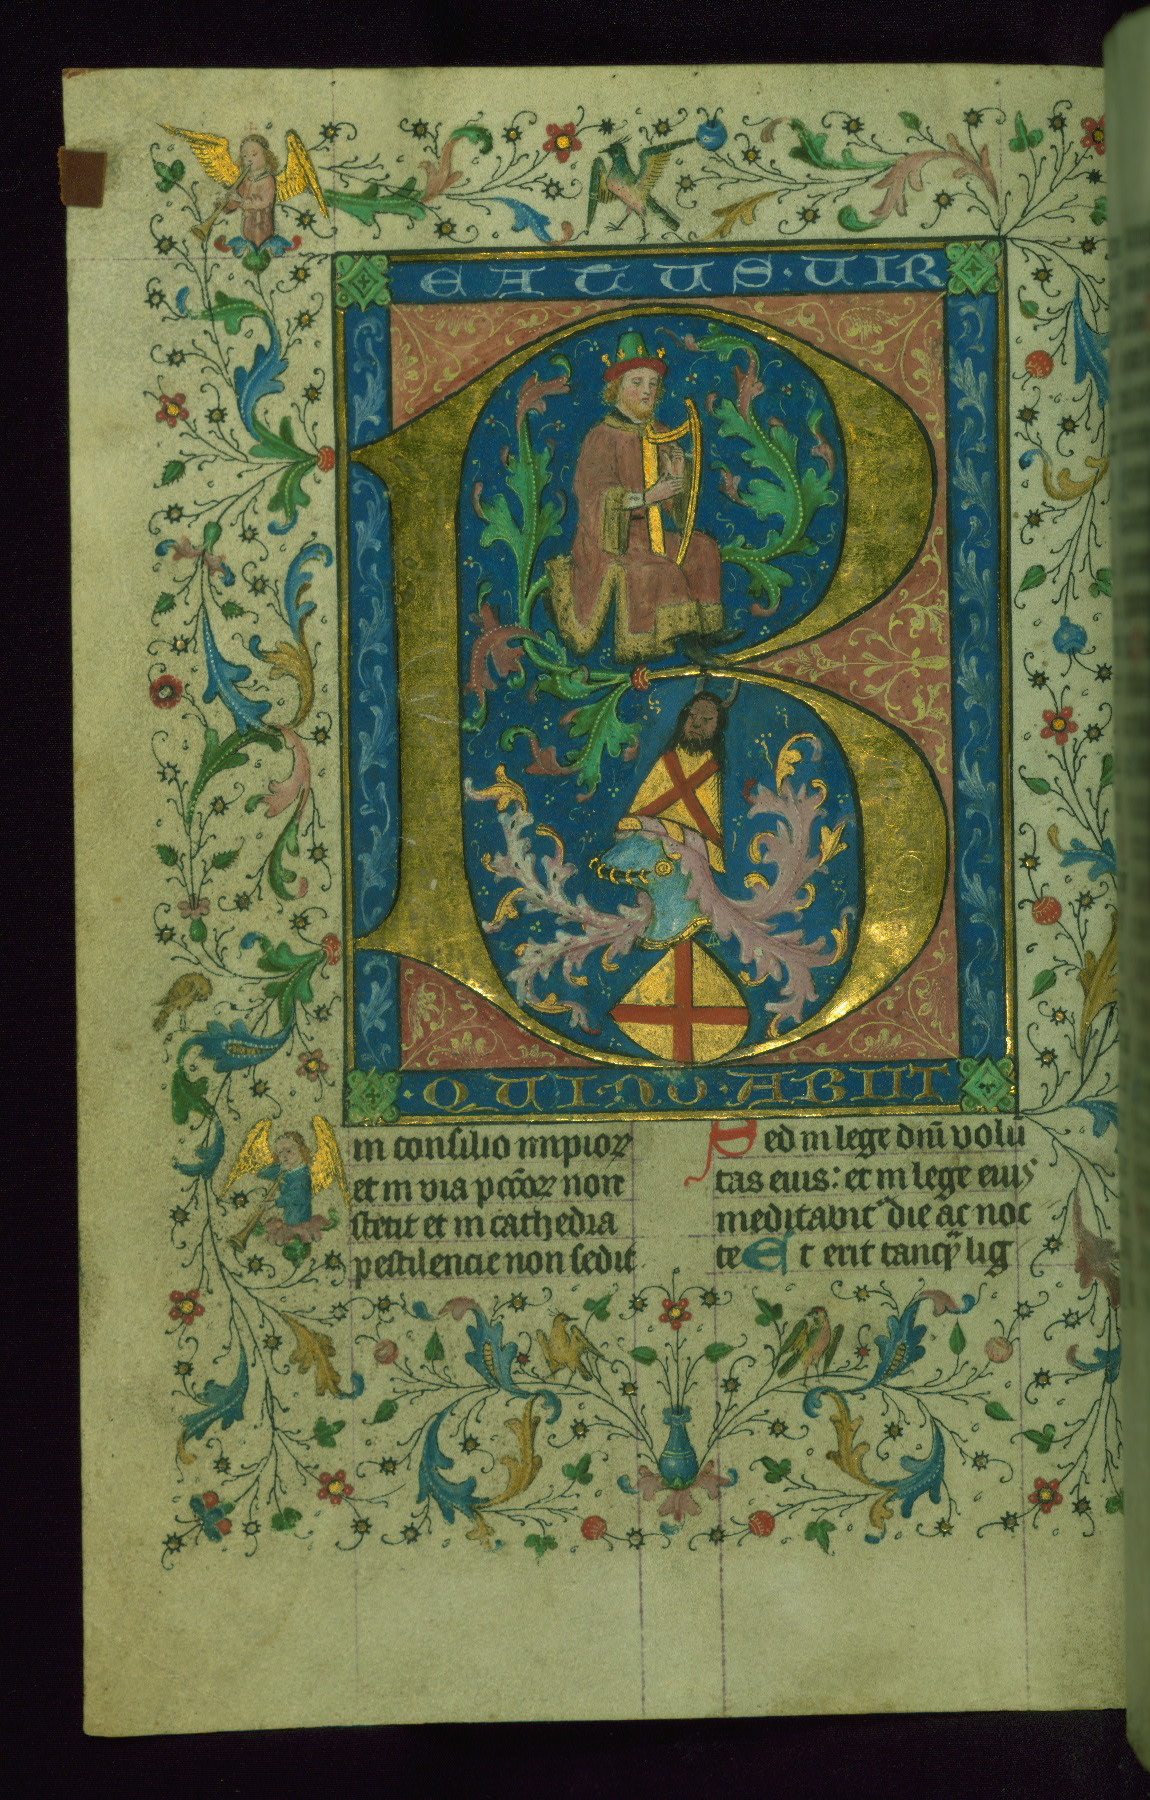 BEATUS·VIR
·QUI·NO·ABIIT
in consilio impior
et in via pccōr non
stetit et in cathedra
pestilencie non sedit
Sed in lege dnī volū
tas eius: et in lege eius
meditabit᷑ die ac noc
te Et erit tanq̄ lig